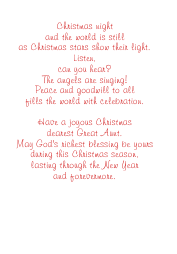 Christmas night
and the world is still
as Christmas stars show their light.
Listen,
can you hear?
The angels are singing!
Peace and goodwill to all
fills the world with celebration.

Have a joyous Christmas
dearest Great Aunt.
May God's richest blessing be yours
during this Christmas season,
lasting through the New Year
and forevermore.